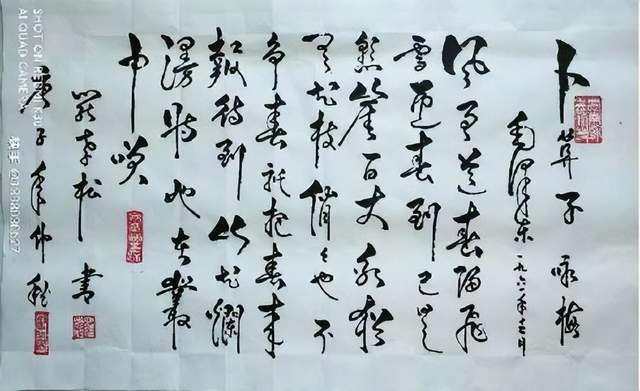 卜算子 咏梅
毛泽东 一九六一年十二月
风雨送春归飛
雪迎春到已是
悬崖百丈冰猶
有花枝俏〻也不
争春祇把春来
報待到山花爛
漫時她在叢
中笑
松書
庚子年仲秋
SHOT ON REDMI K30
AI QUAD CAMERA
快手